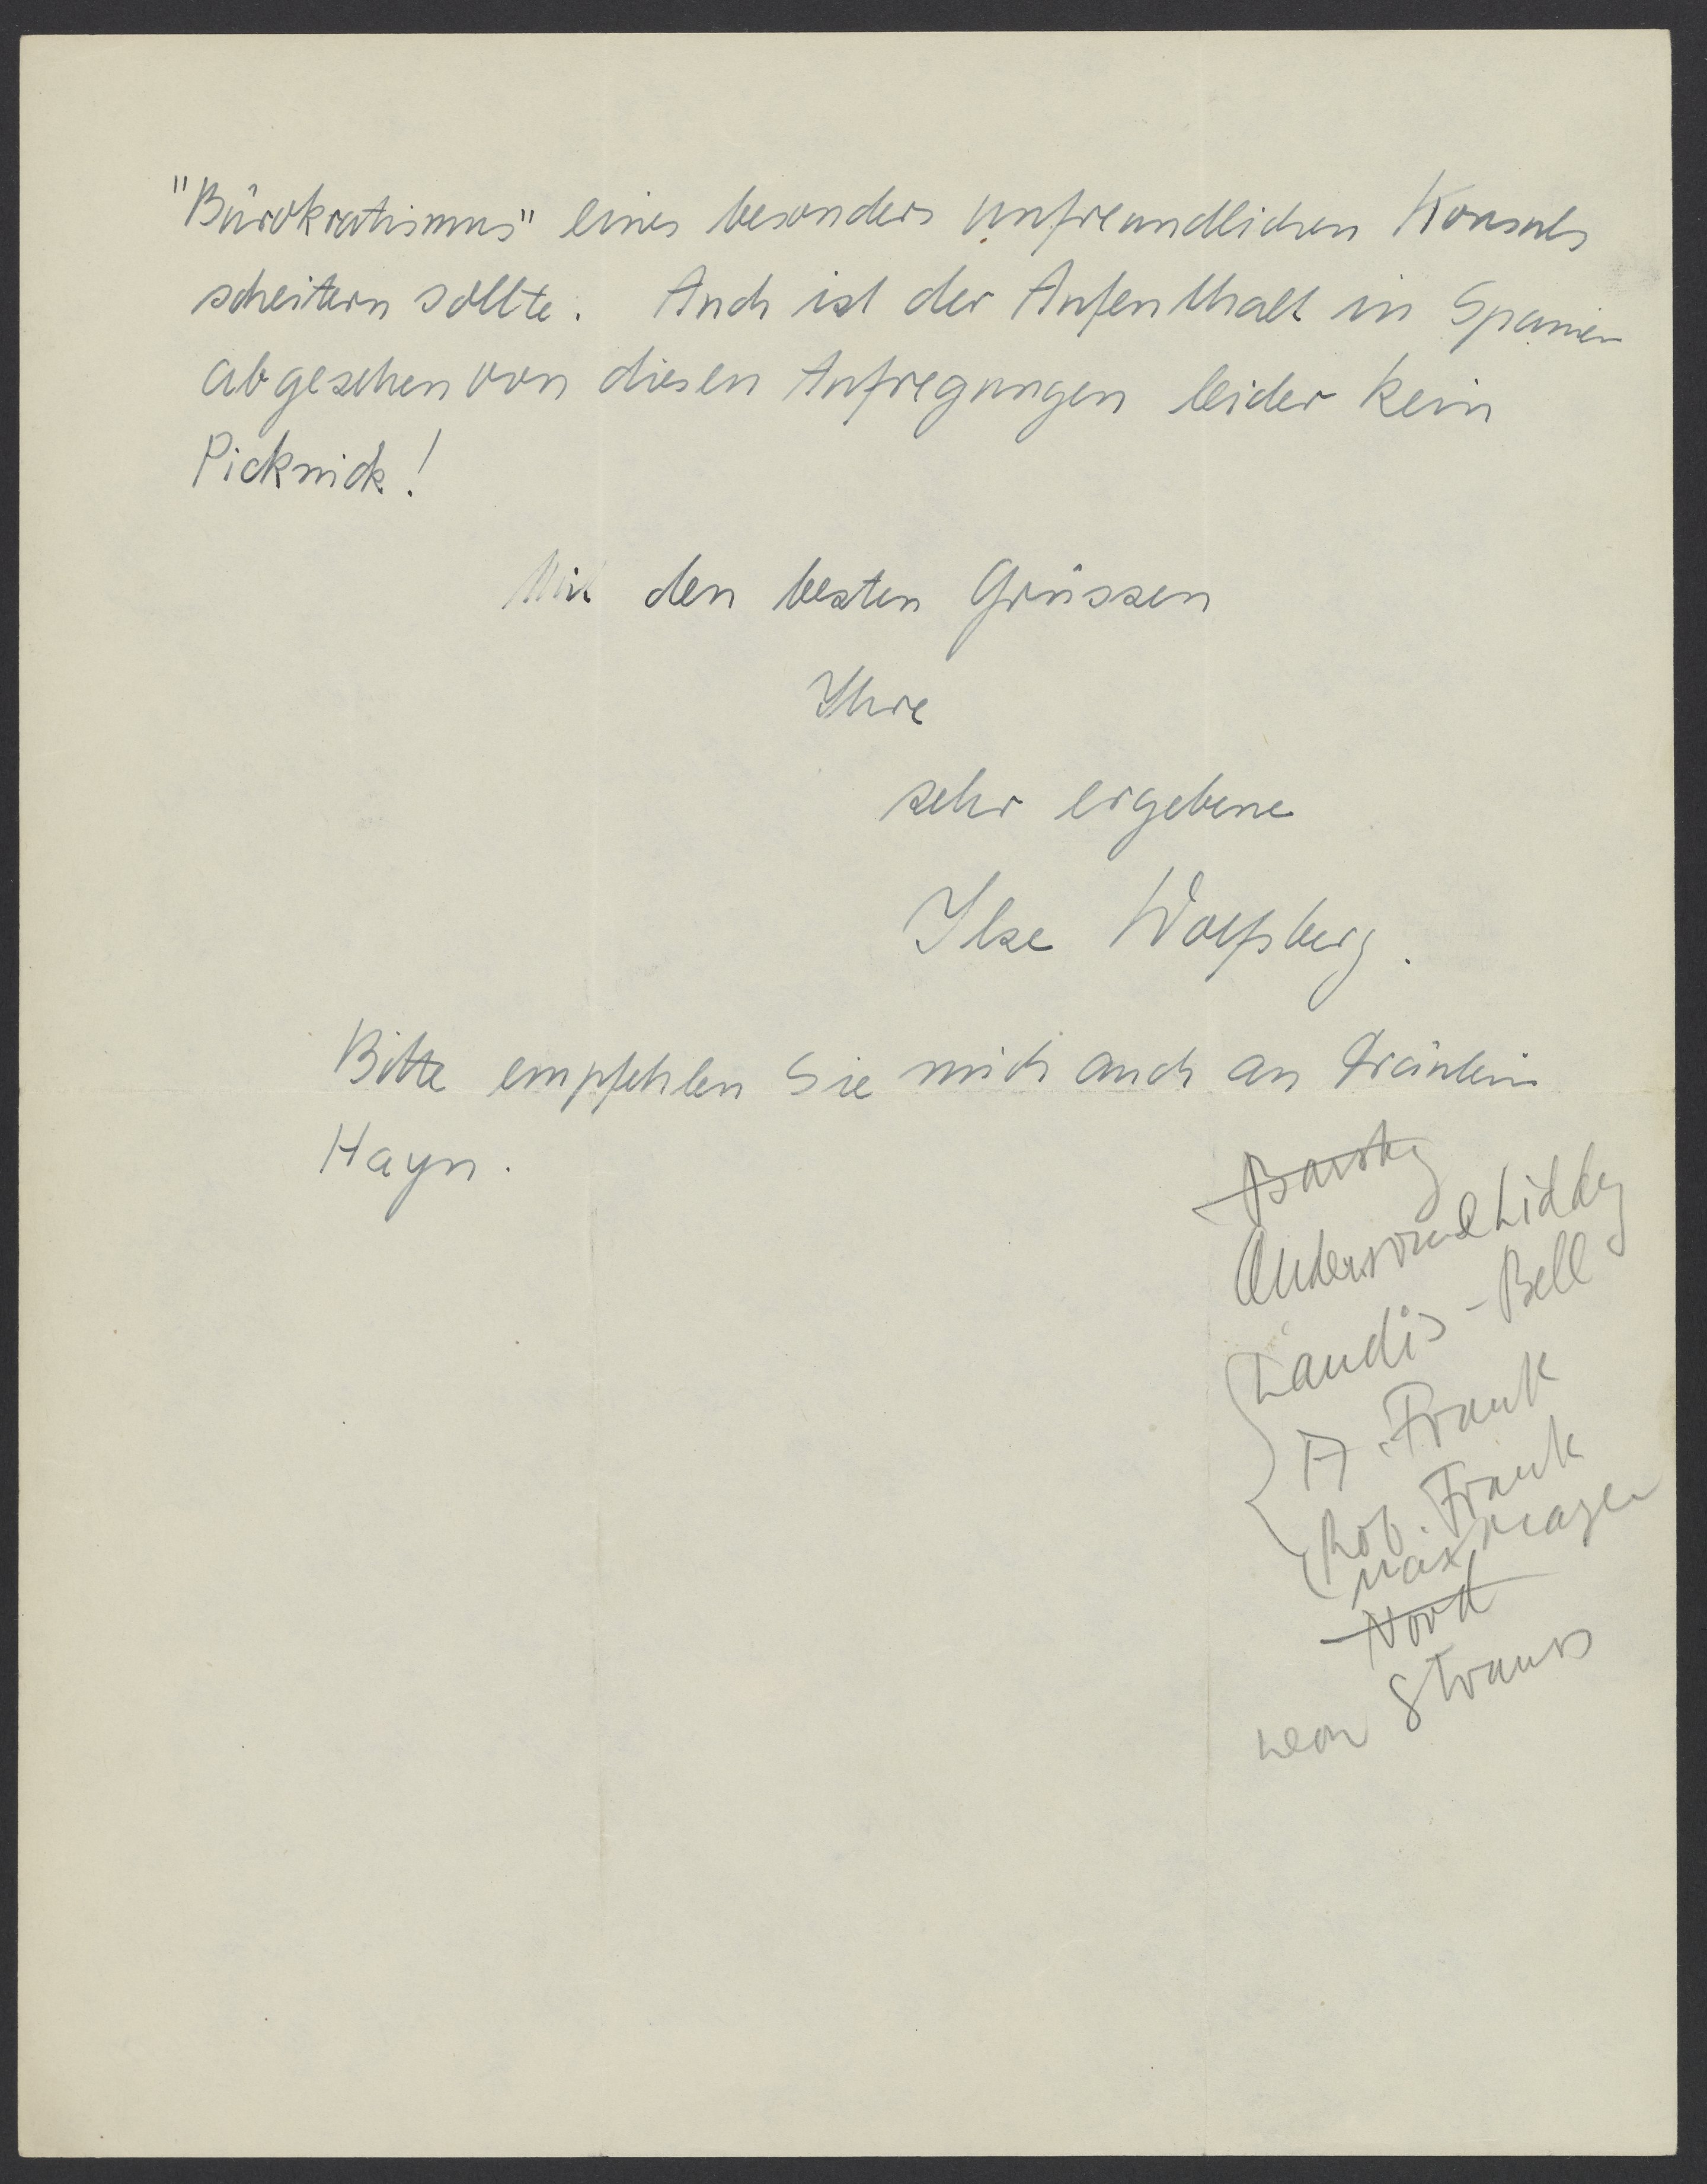 "Bürokratismus" eines besonders unfreundlichen Konsuls
scheitern sollte. Auch ist der Aufenthalt in Spanien
abgesehen von diesen Aufregungen leider kein
Picknick!
Mit den besten Grüssen
Ihre
sehr ergebene
Ilse Wolfsberg.
Bitte empfehlen Sie mich auch an Fräulein
Hayn.
Barsky
Liddy
Landis - Bell
A. Frank
Rob. Frank
Max Mayer
Nord
Leon Strauss